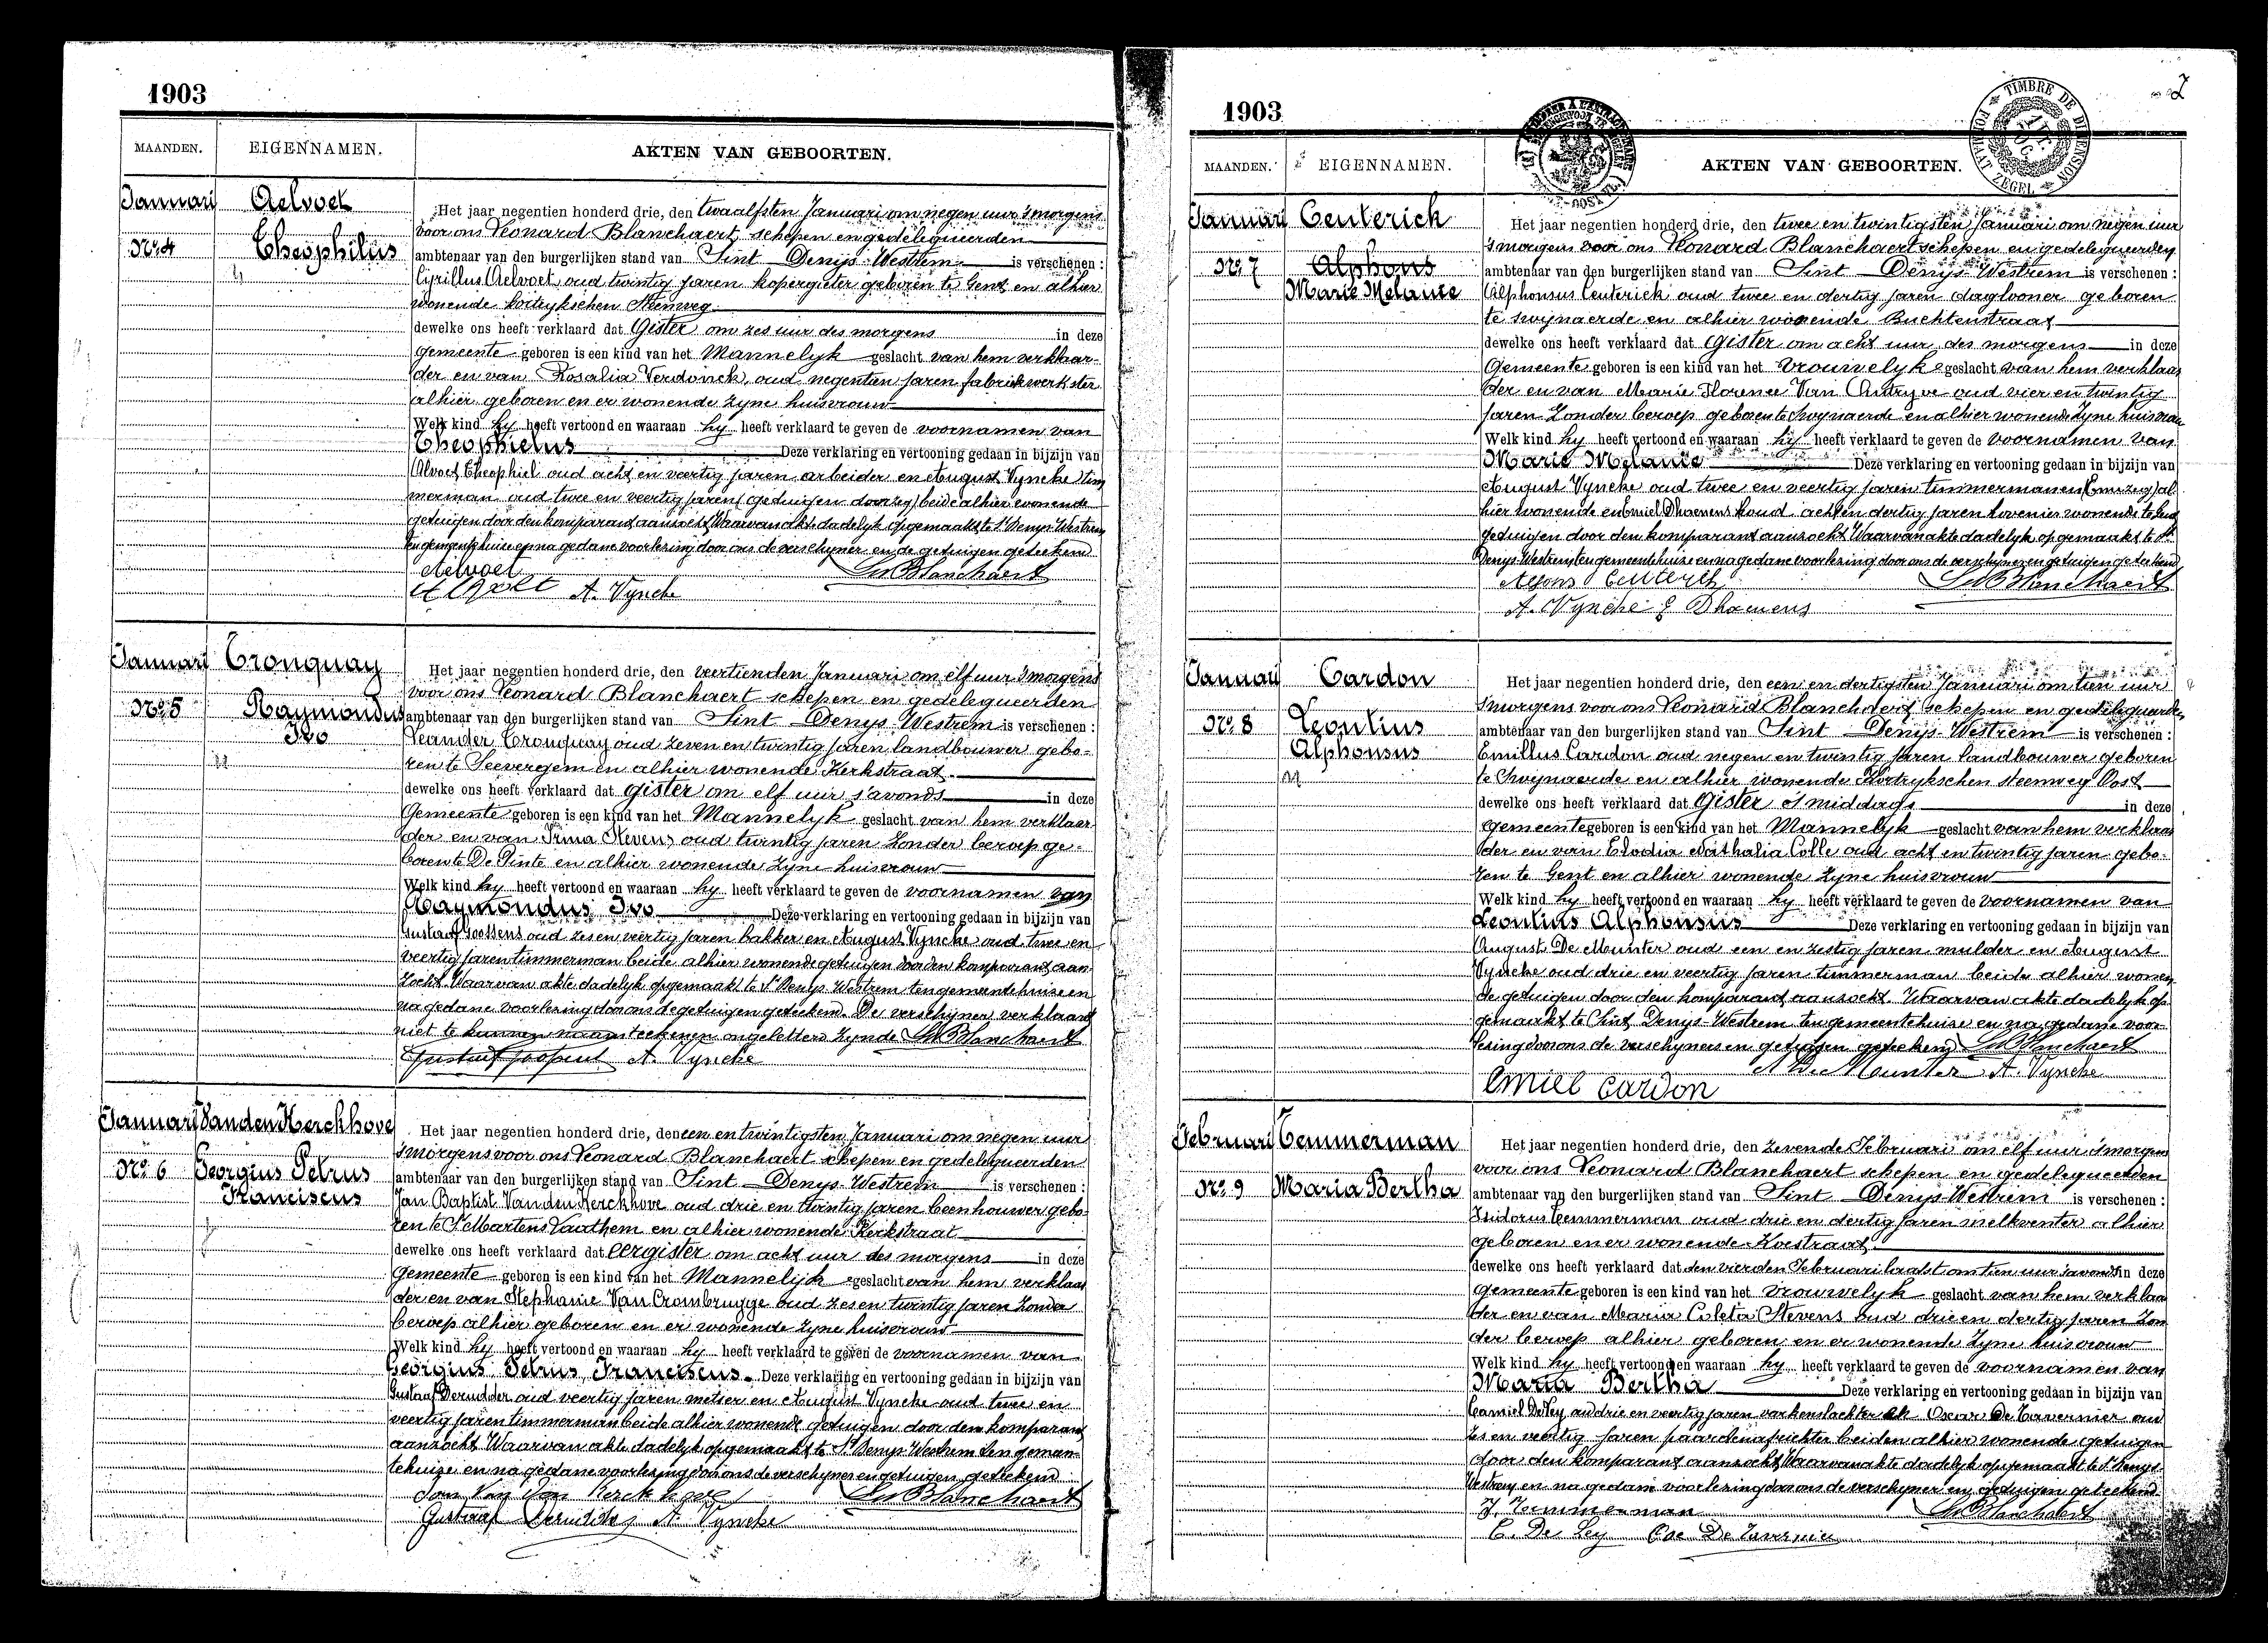 1903
MAANDEN. EIGENNAMEN. AKTEN VAN GEBOORTEN.
Januari Aelvoet
Het jaar negentien honderd drie, den twaalfsten Januari om negen uur 'smorgens
voor ons Leonard Blanchaert, schepen en gedelegueerden
No. 4 Theophilus ambtenaar van den burgerlijken stand van Sint Denys-Westrem is verschenen :
Cyrillus Aelvoet, oud twintig jaren kopergieter geboren te Gent en alhier
wonende kortrykschen Steenweg
dewelke ons heeft verklaard dat Gister om zes uur des morgens in deze
gemeente geboren is een kind van het Mannelyk geslacht van hem verklaar-
der en van Rosalia Verdonck, oud negentien jaren fabriekwerkster
alhier geboren en er wonende zyne huisvrouw
Welk kind hy heeft vertoond en waaraan hy heeft verklaard te geven de voornamen van
Theophielus Deze verklaring en vertooning gedaan in bijzijn van
Alvoet Theophiel oud acht en veertig jaren arbeider en August Vyncke tim
merman oud twee en veertig jaren (getuigen doorzeg) beide alhier wonende
getuigen door den komparant aanzocht Waarvan akte dadelyk opgemaakt te St Denys-Westrem
ten gemeentehuize en na gedane voorlezing door ons de verschyner en de getuigen geteekend
Aelvoet
A. Vyncke
Januari Cronquay
Het jaar negentien honderd drie, den veertienden Januari om elf uur 'smorgens
voor ons Leonard Blanchaert schepen en gedelegueerden
No. 5 Raymondus ambtenaar van den burgerlijken stand van Sint Denys-Westrem is verschenen :
Ivo Leander Cronquay oud zeven en twintig jaren landbouwer gebo-
ren te Seevergem en alhier wonende Kerkstraat
dewelke ons heeft verklaard dat gister om elf uur s'avonds in deze
Gemeente geboren is een kind van het Mannelyk geslacht van hem verklaar
der en van Irma Stevens oud twintig jaren zonder beroep ge-
boren te De Pinte en alhier wonende zyne huisvrouw
Welk kind hy heeft vertoond en waaraan hy heeft verklaard te geven de voornamen van
Raymondus Ivo Deze verklaring en vertooning gedaan in bijzijn van
Gustaaf Goossens oud zes en veertig jaren bakker en August Vyncke oud twee en
veertig jaren timmerman beide alhier wonende getuigen door den komparant aan
zocht Waarvan akte dadelyk opgemaakt te St Denys-Westrem ten gemeentehuize en
na gedane voorlezing door ons de getuigen geteekend. De verschyner verklaard
niet te kunnen naamteekenen ongeletterd zynde
A. Vyncke
Januari Vanden Kerckhove
Het jaar negentien honderd drie, den een en twintigsten Januari om negen uur
'smorgens voor ons Leonard Blanchaert schepen en gedelegueerden
No. 6 Georgius Petrus ambtenaar van den burgerlijken stand van Sint Denys-Westrem is verschenen :
Franciscus Jan Baptist Vanden Kerckhove oud drie en twintig jaren beenhouwer gebo-
ren te St Martens Laathem en alhier wonende Kerkstraat
dewelke ons heeft verklaard dat eergister om acht uur des morgens in deze
Gemeente geboren is een kind van het Mannelijk geslacht van hem verklaar
der en van Stephanie Van Crombrugge oud zes en twintig jaren zonder
beroep alhier geboren en er wonende zyne huisvrouw
Welk kind hy heeft vertoond en waaraan hy heeft verklaard te geven de voornamen van
Georgius Petrus Franciscus. Deze verklaring en vertooning gedaan in bijzijn van
Gustaaf Derudder oud veertig jaren metser en August Vyncke oud twee en
veertig jaren timmerman beide alhier wonende getuigen door den komparant
aanzocht Waarvan akte dadelyk opgemaakt te St Denys-Westrem ten gemeen
tehuize en na gedane voorlezing door ons de verschyner en getuigen geteekend
Jan Van Den Kerckhove
Gustaaf Derudder A. Vyncke
1903
MAANDEN. EIGENNAMEN. AKTEN VAN GEBOORTEN.
TIMBRE DE DIMENSION
FORMAAT ZEGEL
Januari Ceuterick
Het jaar negentien honderd drie, den twee en twintigsten Januari om negen uur
'smorgens voor ons Leonard Blanchaert schepen en gedelegueerden
No. 7 Alphons ambtenaar van den burgerlijken stand van Sint Denys-Westrem is verschenen :
Marie Melanie Alphonsus Ceuterick oud twee en dertig jaren daglooner geboren
te Swynaerde en alhier wonende Buchtenstraat
dewelke ons heeft verklaard dat Gister om acht uur des morgens in deze
Gemeente geboren is een kind van het Vrouwelyk geslacht van hem verklaar
der en van Marie Florence Van Autryve oud vier en twintig
jaren zonder beroep geboren te Swynaerde en alhier wonende zyne huisvrouw
Welk kind hy heeft vertoond en waaraan hy heeft verklaard te geven de voornamen van
Marie Melanie Deze verklaring en vertooning gedaan in bijzijn van
August Vyncke oud twee en veertig jaren timmerman en al
hier wonende en Emiel Dhaemens oud acht en dertig jaren hovenier wonende te Gent
getuigen door den komparant aanzocht Waarvan akte dadelyk opgemaakt te St
Denys-Westrem ten gemeentehuize en na gedane voorlezing door ons de verschyner en getuigen geteekend
Alfons Ceuterick
A. Vyncke E Dhaemens
Januari Cardon
Het jaar negentien honderd drie, den een en dertigsten Januari om tien uur
'smorgens voor ons Leonard Blanchaert schepen en gedelegueerden
No. 8 Leontius ambtenaar van den burgerlijken stand van Sint Denys-Westrem is verschenen :
Alphonsus Emillus Cardon oud negen en twintig jaren landbouwer geboren
te Swynaerde en alhier wonende Kortrykschen steenweg Oost
dewelke ons heeft verklaard dat Gister 's middags in deze
gemeente geboren is een kind van het Mannelyk geslacht van hem verklaar
der en van Elodia Nathalia Colle oud acht en twintig jaren gebo-
ren te Gent en alhier wonende zyne huisvrouw
Welk kind hy heeft vertoond en waaraan hy heeft verklaard te geven de voornamen van
Leontius Alphonsus Deze verklaring en vertooning gedaan in bijzijn van
August De Munter oud een en zestig jaren mulder en August
Vyncke oud drie en veertig jaren timmerman beide alhier wonen
de getuigen door den komparant aanzocht. Waarvan akte dadelyk op
gemaakt te Sint Denys-Westrem ten gemeentehuize en na gedane voor
lezing door ons de verschyners en getuigen geteekend
A De Munter A. Vyncke
Emiel Cardon
Februari Temmerman
Het jaar negentien honderd drie, den zevende Februari om elf uur 'smorgens
voor ons Leonard Blanchaert schepen en gedelegueerden
No. 9 Maria Bertha ambtenaar van den burgerlijken stand van Sint Denys-Westrem is verschenen :
Isidorus Temmerman oud drie en dertig jaren melkventer alhier
geboren en er wonende Koestraat
dewelke ons heeft verklaard dat den vierden Februari laatst om tien uur 's avonds in deze
gemeente geboren is een kind van het Vrouwelyk geslacht van hem verklaar
der en van Maria Coleta Stevens oud drie en dertig jaren zon
der beroep alhier geboren en er wonende zyne huisvrouw
Welk kind hy heeft vertoond en waaraan hy heeft verklaard te geven de voornamen van
Maria Bertha Deze verklaring en vertooning gedaan in bijzijn van
Camiel De Ley oud drie en veertig jaren varkenslachter en Oscar De Tavernier oud
zes en veertig jaren paardenafrichter beiden alhier wonende getuigen
door den komparant aanzocht Waarvan akte dadelyk opgemaakt te St Denys-
Westrem en na gedane voorlezing door ons de verschyner en getuigen geteekend
J. Temmerman
C. De Ley Osc De Tavernier